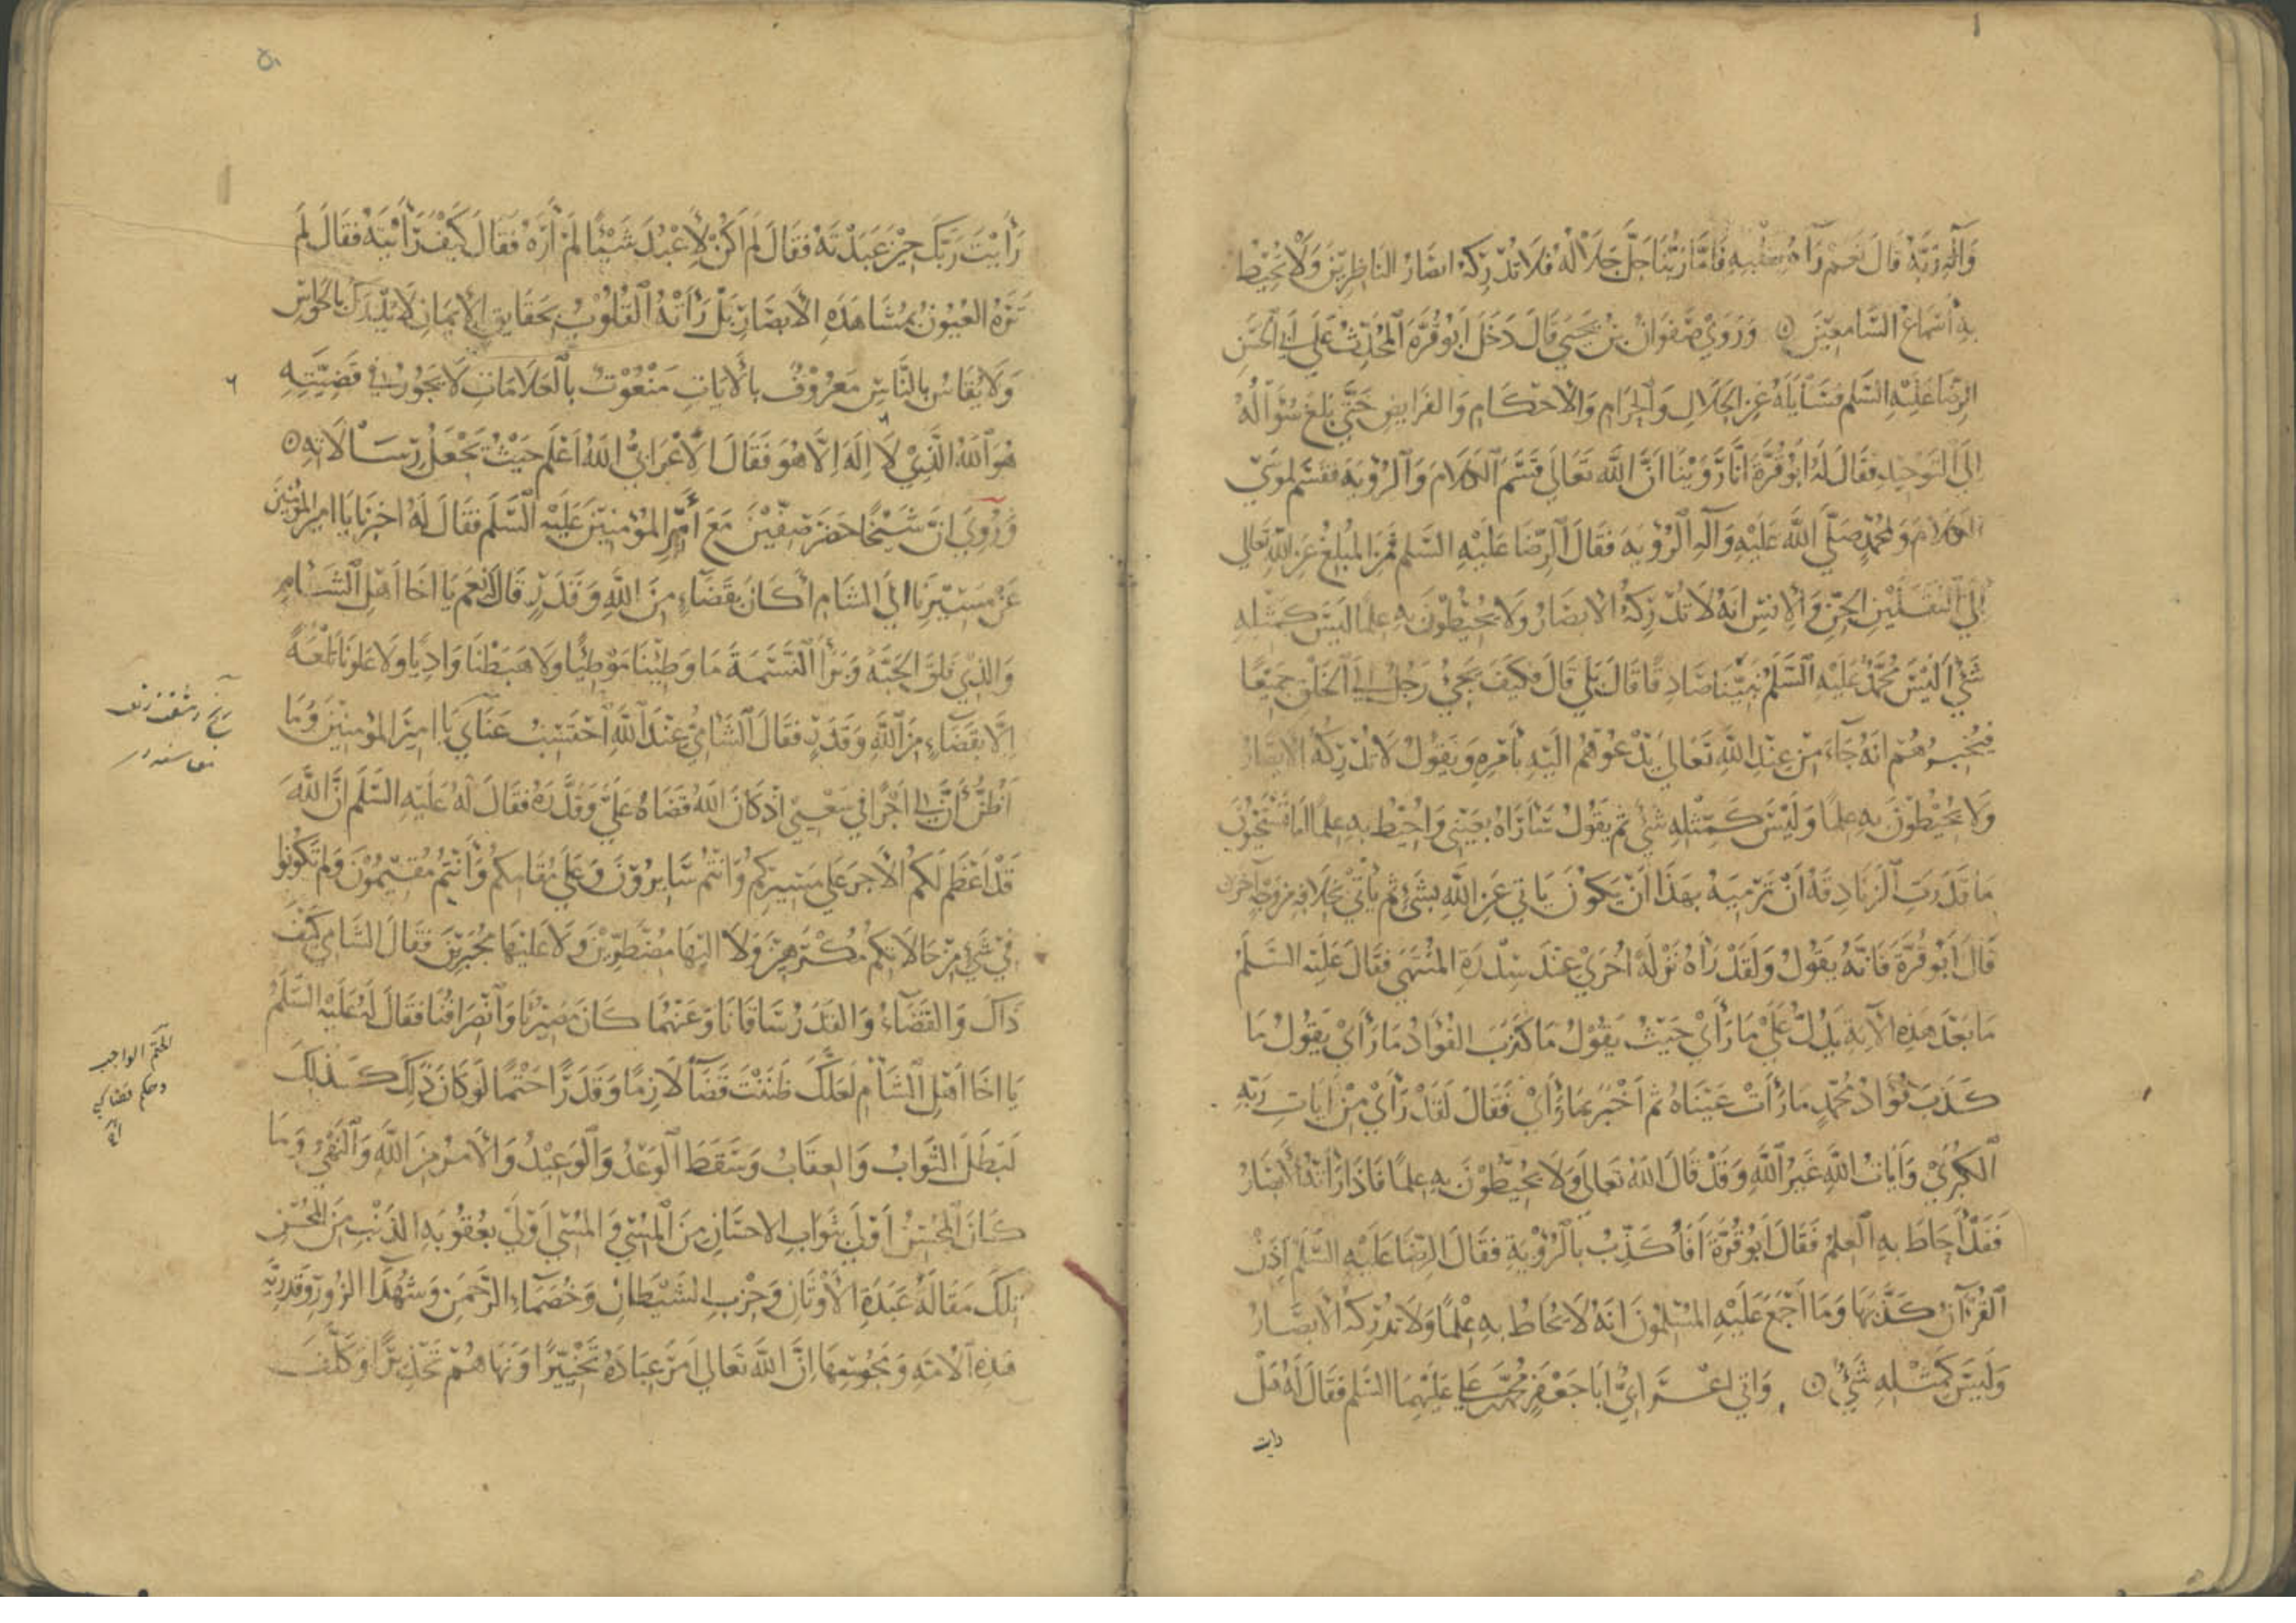 وَآلِهِ رَبَّهُ قَالَ نَعَمْ رَآهُ بِقَلْبِهِ فَأَمَّا رَبُّنَا جَلَّ جَلَالُهُ فَلَا تُدْرِكُهُ ابصَارُ النَاظِرِيْنَ وَلَا يُحِيْطُ
بِهِ أَسْمَاعُ السَّامِعِيْنَ ۞ وَرَوَيٰ صَفْوَانُ بْنُ يَحْيَي قَالَ دَخَلَ اَبُو قُرَّةَ الْمُحَدِّثُ عَلَى اَبِي الْحَسَنِ
الرِّضَا عَلَيْهِ السَّلم فَسَايَلَهُ عَنِ الْحَلَالِ وَالْحَرَامِ وَالْاَحْكَامِ وَالفَرَايضِ حَتَّي بَلغَ سُؤَالُهُ
اِلَى التَوحِيْدِ فَقَالَ لَهُ ابُو قُرَّةَ انَّا رَوَيْنَا اَنَّ اللَّهَ تَعَالَي قَسَّمَ الكَلَامَ وَالرُؤْيَةَ فقسَّم لموسَيٰ
الكَلَامَ وَلِمُحَمَّدٍ صَلَّي اللَّهُ عَلَيْهِ وَآلِهِ الرُؤْيَةَ فَقَالَ الرِّضَا عَلَيْهِ السَّلم فَمَنِ المُبلِغُ عَنِ اللَّهِ تَعَالي
اِلَي الثقَلَيْنِ الجنِّ وَالْاِنْسِ انَهُ لَا تُدْرِكُهُ الْابصَارُ وَلَا يُحِيْطُوْنَ بهِ عِلْمًا لَيْسَ كَمِثْلِهِ
شَيْءٌ اَلَيْسَ مُحَمَّدٌ عَلَيْهِ السَّلَمُ نَبِيَّنَا صَادِقًا قَالَ بَلَي قَالَ فكَيْفَ يَجِيُ رَجُلٌ اِلَي الْخَلْقِ جَمِيْعًا
فيُخْبِرُهُمْ انَّهُ جَآءَ مِنْ عِنْدِ اللَّهِ تَعَالَي يَدْعُوْهُم الَيْهِ بأَمْرِهِ وَيَقُولُ لَا تُدْرِكُهُ الابصَارُ
وَلَا يُحِيْطُوْنَ بِهِ عِلْمًا وَلَيْسَ كَمِثْلِهِ شَيْءٌ ثم يَقُولُ سَاَرَاهُ بِعَيْنِي وَاُحِيْطُ بِهِ عِلْمًا اَمَا تَسْتَحْيُوْنَ
مَا قَدَرَتِ الْزَنَادِقَةُ اَنْ تَرْمِيَهُ بِهَذَا اَنْ يَكُونَ يَاتِي عَنِ اللَّهِ بِشَيْءٍ ثُم يَأْتِي بخِلَافِهِ مِنْ وَجْهٍ آخَرَ
قَالَ اَبُو قُرَّةَ فَاِنَّهُ يَقُولُ وَلَقَدْ رَأَهُ نَزْلَةً اُخْرَيٰ عِنْدَ سِدْرَةِ المُنْتَهَي فقَالَ عَلَيْهِ السَّلَمُ
مَا بَعْدَ هَذِهِ الْآيَةِ يَدُلُّ عَلَي مَا رَأَيٰ حَيْثُ يَقُوْلُ مَا كَذَبَ الفُؤَادُ مَا رَأَيٰ يَقُولُ مَا
كَذَبَ فُؤَادُ مُحَمَّدٍ مَا رَأَتْ عَيْنَاهُ ثم اَخْبَرَ بمَا رَأَيٰ فَقَالَ لَقَدْ رَأَيٰ مِنْ اَيَاتِ رَبِّهِ
الْكُبْرَيٰ وَاَيَاتُ اللَّهِ غَيْرُ اللَّهِ وَقَدْ قَالَ اللَّهُ تَعَالَي وَلَا يُحِيْطُوْنَ بِهِ عِلمًا فَاذَا رَاَتْهُ الْاَبصَارُ
فَقَدْ اَحَاطَ بِهِ الْعِلمُ فَقَالَ اَبُو قُرَّةَ اَفَاُكَذِّبُ بالْرُؤْيَةِ فقَالَ الرِّضَا عَلَيْهِ السَّلَمُ اِذَنْ
الْقُرْآنُ كَذَّبَهَا وَمَا اَجْمَعَ عَلَيْهِ المُسْلِمُونَ انَهُ لَا يُحَاطُ بِهِ عِلْمًا وَلَا تُدْرِكُهُ الْابصَارُ
وَلَيْسَ كَمِثْلِهِ شَيْءٌ ۞ وَاتي اعْرَابِيٌّ اَبَا جَعْفَرٍ مُحَمَّد بن عَلِي عَلَيْهِمَا السَّلم فقَالَ لَهُ هَلْ
رايت
رَأَيْتَ رَبَّكَ حِيْنَ عَبَدْتَهُ فَقَالَ لَم اَكُنْ لِأَعْبُدَ شَيْئًا لَمْ أَرَهُ فَقَالَ كَيْفَ رَأَيْتَهُ فقَالَ لَمْ
تَرَهُ العُيُونُ بِمُشَاهَدَةِ الْأَبصَارِ بَلْ رَأَتْهُ الْقُلُوْبُ بِحَقَايِقِ الْإِيمَانِ لَا يُدْرَكُ بِالحَوَاسِّ
وَلَا يُقَاسُ بِالنَّاسِ مَعْرُوْفٌ بالْايَاتِ مَنْعُوْتٌ بالْعَلَامَاتِ لَا يَجُوْرُ في قَضِيَّتِهِ
هُوَ اللَّهُ الَّذِيْ لَا اِلَهَ اِلَّا هُوَ فَقَالَ الْاَعْرَابيُّ اللَّهُ اَعْلَم حَيْثُ يَجْعَلُ رِسَالَاتِهِ ۞
وَرُوِيَ انَّ شَيْخًا حَضَرَ صِفِّيْنَ مَعَ أَمِيْرِ المُؤْمِنِيْنَ عَلَيْهِ الْسَّلَم فَقَالَ لَهُ اخبرنَا يَا امير المؤمنينَ
عَنْ مَسِيْرِنَا الي الشَامِ أَكَانَ بِقَضَآءٍ مِنَ اللَّهِ وَقَدَرٍ قَالَ لَهُ نَعَم يَا اخَا اَهْلِ الْشَامِ
وَالذِيْ فَلَقَ الحَبَّةَ وَبَرَأَ الْنَسَمَةَ مَا وَطِيْنَا مَوْطِئًا وَلَا هَبَطْنَا وَادِيًا وَلَا عَلَوْنَا تَلْعَةً
اِلَّا بِقَضَآءٍ مِنَ اللَّهِ وَقَدَرٍ فقَالَ الْشَامِيُّ عِنْدَ اللَّهِ اَحْتَسِبُ عَنَاي يَا امِيْرَ المؤمِنِيْنَ وَمَا
اَظُنُّ أَنَّ لِي اَجْرًا فِي سَعْيِي اِذْ كَانَ اللَّهُ قَضَاهُ عَلَيَّ وَقَدَّرَهُ فقَالَ لَهُ عَلَيْهِ السَّلَم اِنَّ اللَّهَ
قَدْ اَعْظَم لَكُم الْاَجرَ عَلَي مَسِيرِكُم وَانتُم سَايرُوْنَ وَعَلَي مُقَامِكُم وَأَنْتُم مُقِيْمُوْنَ وَلَم تَكُونُوا
فِي شَيْءٍ مِنْ حَالَاتِكُم مُكْرَهِيْنَ وَلَا الَيْهَا مُضْطَرِّيْنَ وَلَا عَلَيْهَا مُجْبَرِيْنَ فقَالَ الشَامِي كَيْفَ
ذَاكَ وَالقَضَآءُ وَالقَدَرُ سَاقَانَا وَعَنْهُمَا كَانَ مَسِيْرُنَا وَانْصِرَافُنَا فقَالَ لَهُ عَلَيْهِ السَّلَمُ
يَا اخَا اَهْلِ الْشَامِ لَعَلَّكَ ظَنَنْتَ قَضَآءً لَازِمًا وَقَدَرًا حَتْمًا لَو كَانَ ذَلِكَ كَذَلِكَ
لَبَطَلَ الثَّوَابُ وَالعِقَابُ وَسَقَطَ الْوَعْدُ وَالْوَعِيْدُ وَالْاَمرُ مِنَ اللَّهِ وَالنَهْيُ وَمَا
كَانَ الْمُحْسِنُ اَوْلَي بِثَوَابِ الْاحسَانِ مِنَ الْمُسِيءِ وَ المُسِيءُ اَوْلَي بعُقُوبَةِ الذَنْبِ مِنَ المُحْسِنِ
تِلْكَ مَقَالَةُ عَبَدَةِ الْاَوْثَانِ وَحِزْبِ الشَيْطَانِ وَخُصَمَآءِ الرَّحْمَنِ وَشُهَدَا الزُورِ وَقَدَرِيَّةِ
هَذِهِ الْامَّةِ وَمَجُوسِهَا اِنَّ اللَّهَ تَعَالَي اَمَرَ عِبَادَهُ تَخْيِيْرًا وَنَهَاهُمْ تَحْذِيرًا وَكَلَّفَ
الحتم الواجب